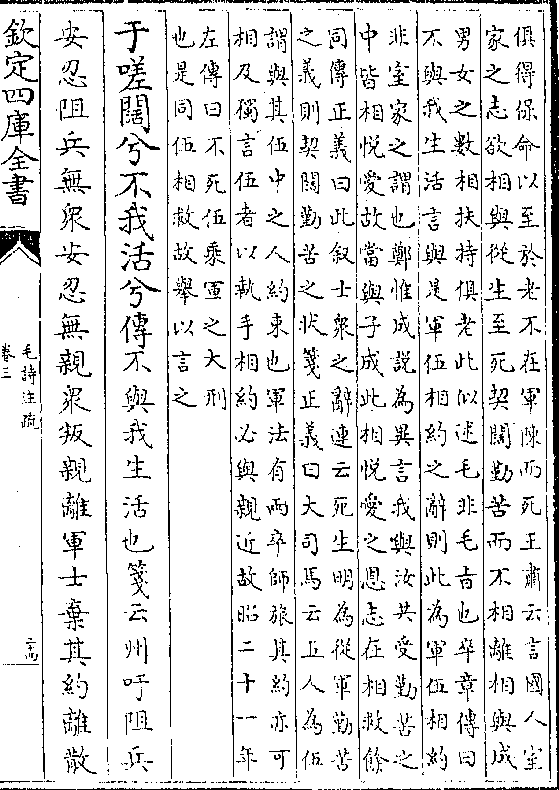 俱得保命以至於老不在軍陳而死王肅云言國人室
家之志欲相與從生至死契闊勤苦而不相離相與成
男女之數相扶持俱老此似述毛非毛㫖也卒章傳曰
不與我生活言與是軍伍相約之辭則此為軍伍相約
非室家之謂也鄭惟成説為異言我與汝共受勤苦之
中皆相悦愛故當與子成此相悦愛之恩志在相救餘
同傳正義曰此叙士衆之辭連云死生明為從軍勤苦
之義則契闊勤苦之狀箋正義曰大司馬云五人為伍
謂與其伍中之人約束也軍法有兩卒師旅其約亦可
相及獨言伍者以執手相約必與親近故昭二十一年
左傳曰不死伍乘軍之大刑
也是同伍相救故舉以言之
于嗟闊兮不我活兮傳不與我生活也箋云州吁阻兵
安忍阻兵無衆安忍無親衆叛親離軍士棄其約離散
欽定四庫全書
毛詩注疏
卷三